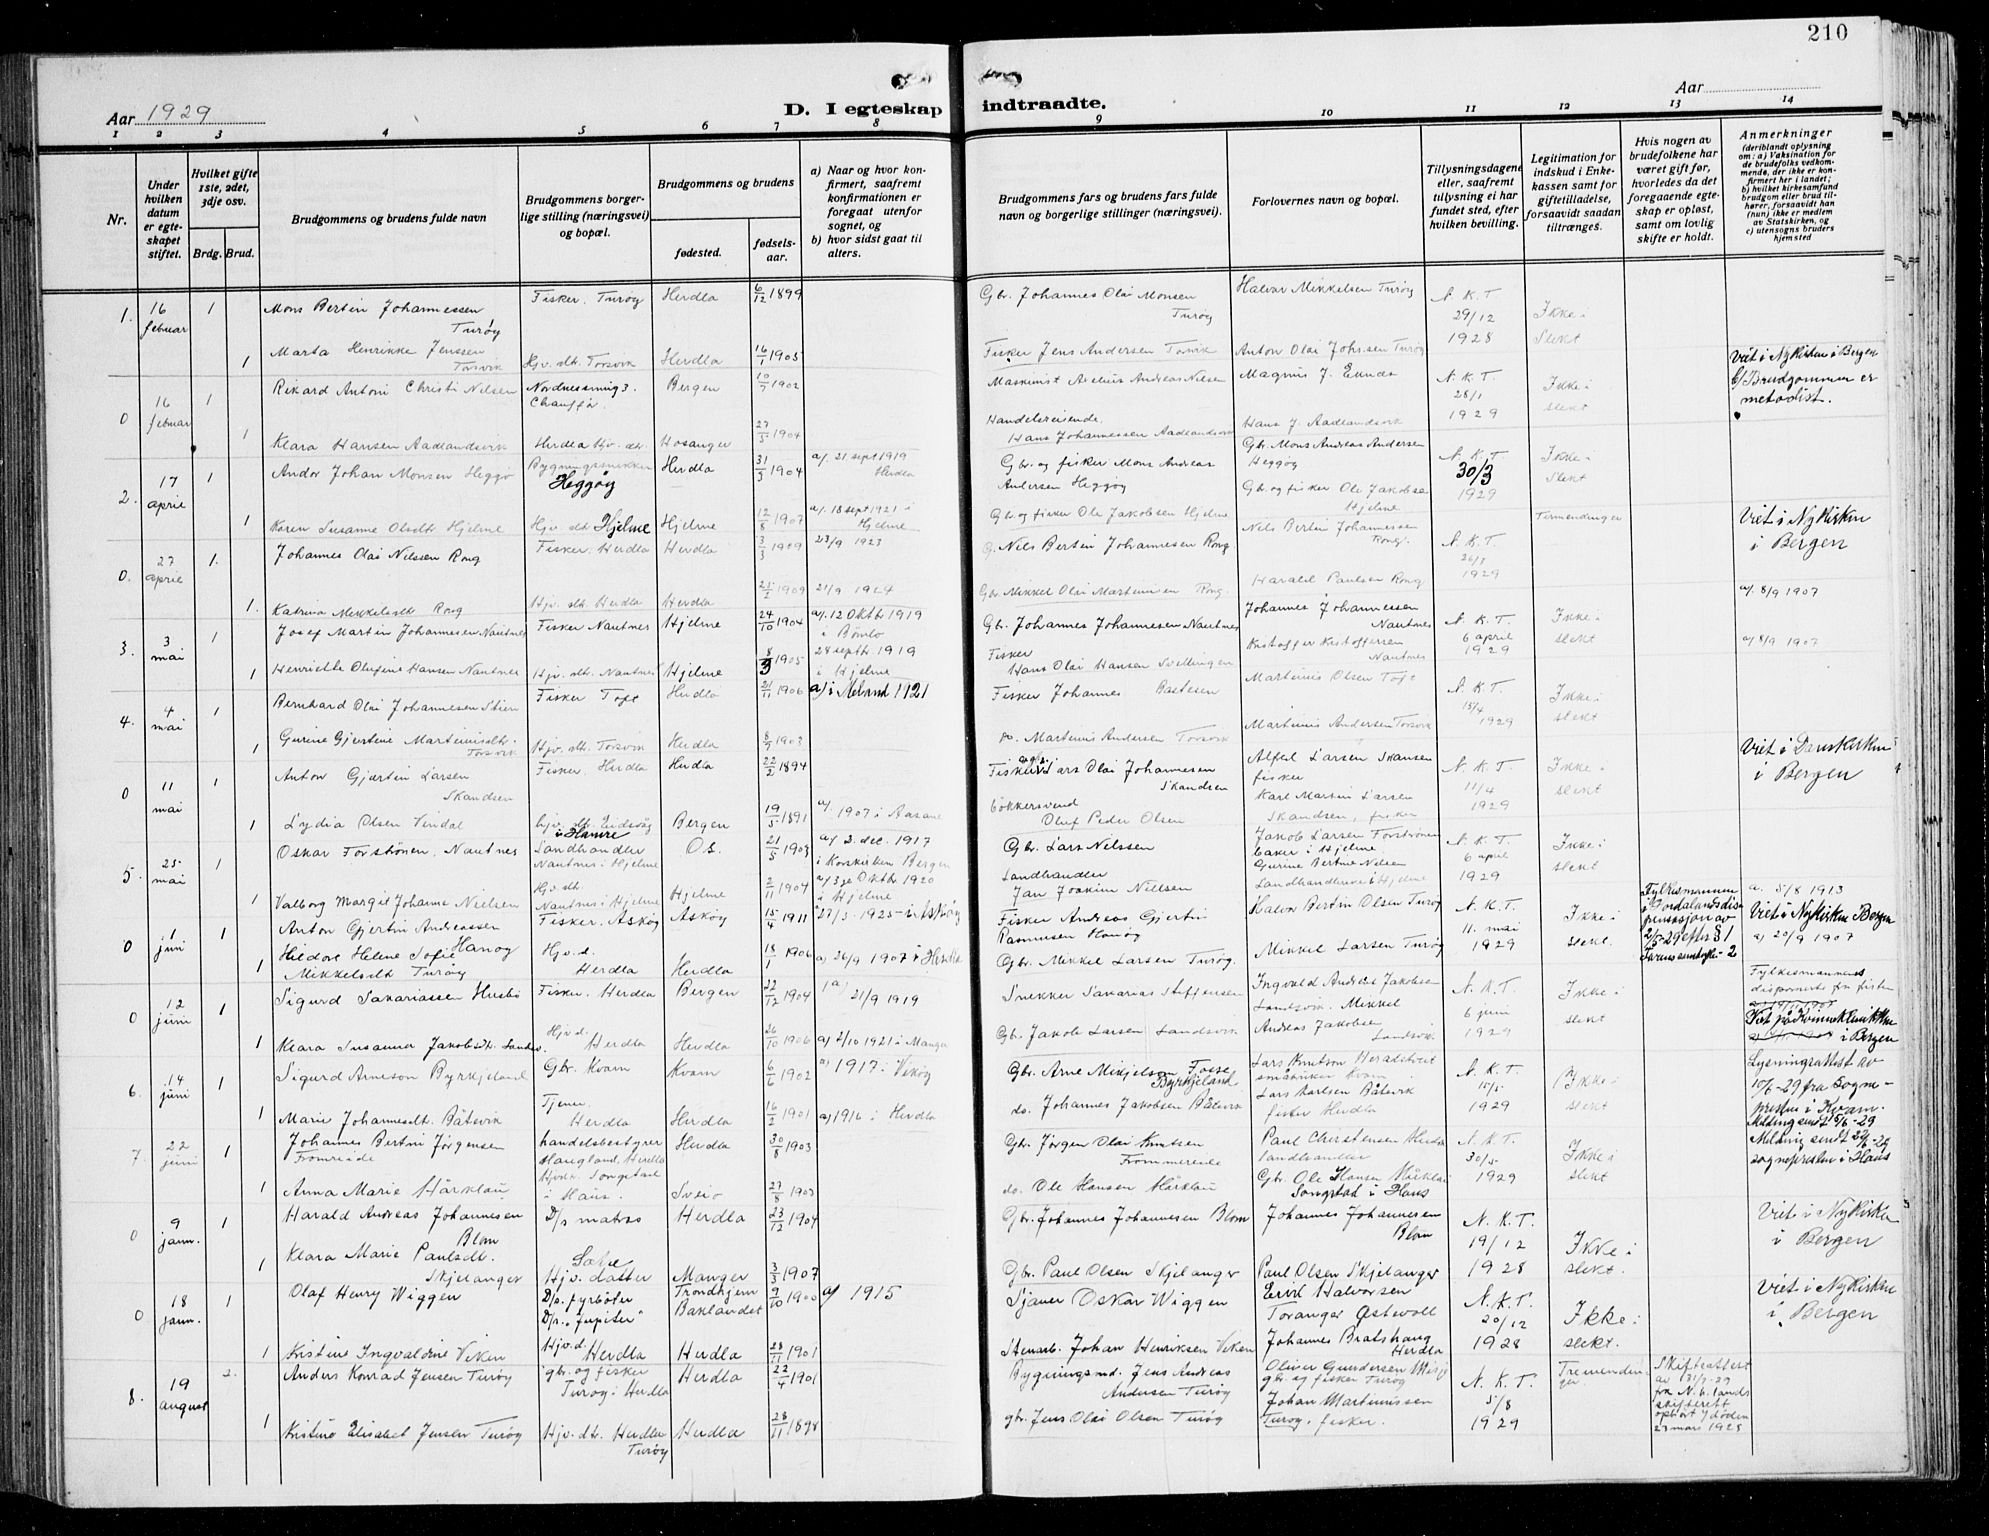 210
Aar 1929
D. I egteskap indtraadte.
Aar
1 2 3 4 5 6 7 8 9 10 11 12 13 14
Nr.
Under hvilken datum er egteskapet stiftet.
Hvilket gifte 1ste, 2det, 3dje osv.
Brdg. Brud.
Brudgommens og brudens fulde navn
Brudgommens borgerlige stilling (næringsvei) og bopæl.
Brudgommens og brudens
fødested.
fødselsaar.
a) Naar og hvor konfirmert, saafremt konfirmationen er foregaat utenfor sognet, og
b) hvor sidst gaat til alters.
Brudgommens fars og brudens fars fulde navn og borgerlige stillinger (næringsvei).
Forlovernes navn og bopæl.
Tillysningsdagene eller, saafremt tullysning ei har fundet sted, efter hvilken bevilling.
Legitimation for indskud i Enkekassen samt for giftetilladelse, forsaavidt saadan tiltrænges.
Hvis nogen av brudefolkene har været gift før, hvorledes da det foregaaende egteskap er opløst, samt om lovlig skifte er holdt.
Anmerkninger
(deriblandt oplysning om: a) Vaksination for de brudefolks vedkommende, der ikke er konfirmert her i landet; b) hvilket kirkesamfund brudgom eller brud tilhører, forsaavidt han (hun) ikke er medlem av Statskirken, og c) utensogns bruders hjemsted
1. 16 februar 1 Mons Bertin Johannessen Turøy Fisker. Turøy Herdla 6/12 1899 Gbr. Johannes Olai Monsen Turøy Halvar Mikkelsen Turøy N.K.T. 29/12 1928 Ikke i slekt
1 Marta Henrikke Jenssen Torsvik Hjv. dtr. Torsvik Herdla 16/1 1905 Fisker Jens Andersen Torsvik Anton Olai Johnsen Turøy
0 16 februar 1 Rikard Antoni Christi Nilsen Chauffør Bergen 10/7 1902 Maskinist Andreas Nilsen Magnus J. N.K.T. 28/1 1929 Ikke i slekt Viet i Nykirken i Bergen b/ Brudgommen er metodist.
1 Klara Hansen Aadlandsvik Herdla Hjv. dtr. Hosanger 27/5 1904 Handelsreisende Hans Johannessen Aadlandsvik Hans J. Aadlandsvik
2. 17 april 1 Andor Johan Monsen Heggø Bygningssnekker Heggøy Herdla 31/3 1904 a/. 21 sept 1919 Herdla Gbr. og fisker Mons Andreas Andersen Heggøy Gbr. Mons Andreas Andersen Heggøy N.K.T. 30/3 1929 Ikke i slekt
1 Karen Susanne Olsdtr Hjelme Hjv. dtr. Hjelme Hjelme 12/8 1907 a/. 18 sept 1921 i Hjelme Gbr. og fisker Ole Jakobsen Hjelme Gbr. og fisker Ole Jakobsen Hjelme
0. 27 april 1. Johannes Olai Nilssen Rong Fisker. Herdla Herdla 3/3 1909 23/9 1923 G. Nils Bertin Johannesen Rong. Nils Bertin Johannessen Rong. N.K.T. 1929 Viet i Nykirken i Bergen
1. Katrina Mikkelsdtr Rong Hjv. dtr. Herdla Herdla 25/2 1909 21/9 1924 Gbr. Mikkel Olai Martinusen Rong. Harald Paulsen Rong.
3. 3 mai 1 Josef Martin Johannesen Nautnes Fisker Nautnes Hjelme 24/10 1904 a/. 12 Oktbr 1919 i Bømlo Gbr. Johannes Johannesen Nautnes Johannes Johannessen Nautnes N.K.T. 6 april 1929 Ikke i slekt a/. 8/9 1907
1 Henriette Olufine Hansen Nautnes Hjv. dtr. Nautnes Hjelme 8/3 1905 28 septbr 1919 i Hjelme Fisker Hans Olai Hansen Svellingen Kristoffer Kristoffersen Nautnes a/ 8/9 1907
4. 4 mai 1 Bernhard Olai Johannesen Stien Fisker Toft Herdla 21/11 1906 a/ i Meland 1921 Fisker Johannes Bastesen Martinus Olsen Toft N.K.T. 15/4 1929 Ikke i slekt
1 Gurine Gjertine Martinusdtr. Torsvik Hjv. dtr. Torsvik Herdla 8/9 1903 Martinus Andersen Torsvik Martinus Andersen Torsvik
0 11 mai 1 Anton Gjertin Larsen Skandsen Fisker. Herdla Herdla 22/2 1894 Fisker Lars Olai Johannesen Skandsen Alfeil Larsen Skansen fisker N.K.T. 11/4 1929 Ikke i slekt Viet i Danskirken i Bergen
1 Lydia Olsen Vindal Hjv. dtr. Eidsvåg i Hamre Bergen 19/5 1891 a/. 1907 i Aasane Bøkkersvend Oluf Peder Olsen Karl Martin Larsen Skandsen, fisker
5. 25 mai 1 Oskar Forstrønen. Nautnes Landhandler Nautnes i Hjelme Os. 21/5 1903 a/ 2. dec. 1917 i Korskirken Bergen Gbr. Lars Nilssen Jakob Larsen Forstrønen baker i Hjelme N.K.T. 6 april 1929 Ikke i slekt
1 Valborg Margit Johanne Nielsen Hjv. dtr. Nautnes i Hjelme Hjelme 2/11 1904 a/ 3je Oktbr 1920 i Hjelme Landhandler Jan Joakim Nielsen Gurine Bertine Nilsen Landhandlerske i Hjelme
0 1 juni 1 Anton Gjertin Andreassen Hanøy Fisker. Askøy Askøy 15/4 1911 27/9 1925 i Askøy Fisker Andreas Gjertin Rasmussen Hanøy Halvor Bertin Olsen Turøy N.K.T. 11. mai 1929 Ikke i slekt. Fylkesmannen i Hordalands dispensasjon av 2/5-29 efter § 1 a. 5/8 1913 Viet i Nykirken Bergen
1 Hildore Helene Sofie Mikkelsdtr Turøy Hjv.d. Herdla Herdla 18/1 1906 a/ 26/9 1907 i Herdla Gbr. Mikkel Larsen Turøy. Mikkel Larsen Turøy a/ 20/9 1907
0 12 juni 1 Sigurd Sakariassen Husbø Fisker. Herdla Bergen 22/12 1904 a/ 21/9 1919 Snekker Sakarias Steffensen Ingvald Andreas Jakobsen Landsvik. Mikkel N.K.T. 6 juni 1929 Ikke i slekt i Bergen
1 Klara Susanna Jakobsdtr. Landsv. Hjv.d. Herdla Herdla 26/10 1906 a/ 2/10 1921 i Manger Gbr. Jakob Larsen Landsvik Andreas Jakobsen Landsvik
6. 14 juni 1 Sigurd Arneson Byrkjeland Gbr. Kvam Kvam 6/6 1902 a/ 1917 i Vikøy Gbr. Arne Mikjelson Fosse Byrkjeland Lars Knutson Heradstveit småbruker Kvam N.K.T. 15/5 1929 Ikke i slekt Lysningsattest av 10/6-29 fra Sogneprestens i Kvam.
1 Marie Johannesdtr. Båtevik Tjener Herdla Herdla 16/2 1901 a/ 1916 i Herdla do. Johannes Jakobsen Båtevik Lars Karlsen Båtevik fisker Herdla
7. 22 juni 1 Johannes Bertin Jørgensen Fromreide handelsbestyrer Haugland, Herdla Herdla 30/8 1903 Gbr. Jørgen Olai Knutsen Frommereide Paul Cherstensen Herdla landhandler N.K.T. 30/5 1929 Ikke i slekt sognepresten i Haus
1 Anna Marie Hårklau i Haus. Sveio 27/8 1903 do. Ole Hansen Hårklau Gbr. Ole Hansen Hårklau Songstad i Haus
0 9 jann. 1 Harald Andreas Johannesen Blom D/s matros Herdla 23/12 1904 Gbr. Johannes Johannesen Blom Johannes Johannesen Blom N.K.T. 19/12 1928 Ikke i slekt. Viet i Nykirken i Bergen
1 Klara Marie Paulsdtr. Skjelanger Hjv. datter Manger 3/3 1907 Gbr. Paul Olsen Skjelanger Paul Olsen Skjelanger
0 18 jann. 1 Olaf Henry Wiggen D/s. fyrbøter D/s. "Jupiter" Trondhjem Baklandet 9/10 1900 a/ 1915 Sjauer Oskar Wiggen Eivil Halvorsen Toranger Østevoll N.K.T. 20/12 1928 Ikke i slekt. Viet i Nykirken i Bergen
1 Kristine Ingvaldine Viken Hjv.d. Herdla Herdla 28/11 1901 Stenarb. Johan Henriksen Viken Johannes Bratshaug Herdla
8. 19 august 2. Anders Konrad Jensen Turøy gbr. og fisker Turøy i Herdla Herdla 22/4 1901 Bygningssnd. Jens Andreas Andersen Turøy Oliver Gundersen gbr. og fisker Turøy N.K.T. 5/8 1929 Tremenninger Skifteattest av 31/7-29 skifterett 23 mars 1928
1 Kristine Elisabet Jensen Turøy Hjv. dtr. Herdla Turøy Herdla 28/11 1898 gbr. Jens Olai Olsen Turøy Johan Martinussen Turøy. fisker.